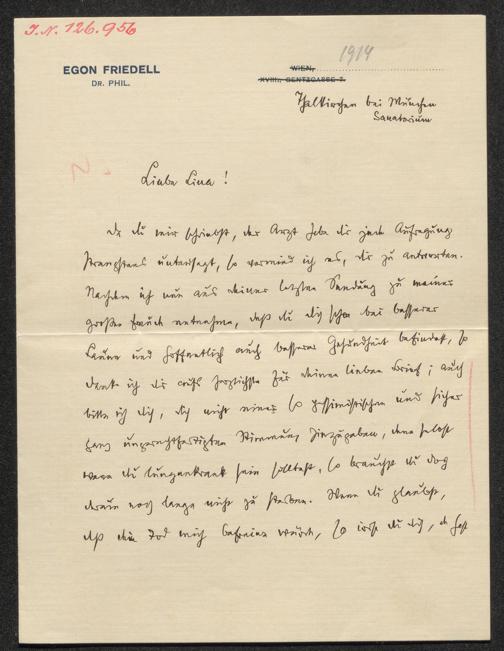 I.N. 126.956
1914
EGON FRIEDELL
DR. PHIL.
WIEN,
XVIII., GENTZGASSE 7.
Thalkirchen bei München
Sanatorium
Liebe Lina!
Da du mir schreibst, der Arzt habe dir jede Aufregung
strengstens untersagt, so vermied ich es, dir zu antworten.
Nachdem ich nun aus deiner letzten Sendung zu meiner
großen Freude entnehme, daß du dich schon bei besserer
Laune und hoffentlich auch besserer Gesundheit befindest, so
danke ich dir aufs herzlichste für deinen lieben Brief; auch
bitte ich dich, dich nicht einer so pessimistischen und sicher
ganz ungerechtfertigten Stimmung hinzugeben, denn selbst
wenn du lungenkrank sein solltest, so brauchst du doch
daran noch lange nicht zu sterben. Wenn du glaubst,
daß dein Tod mich befreien würde, so irrst du dich, du hast